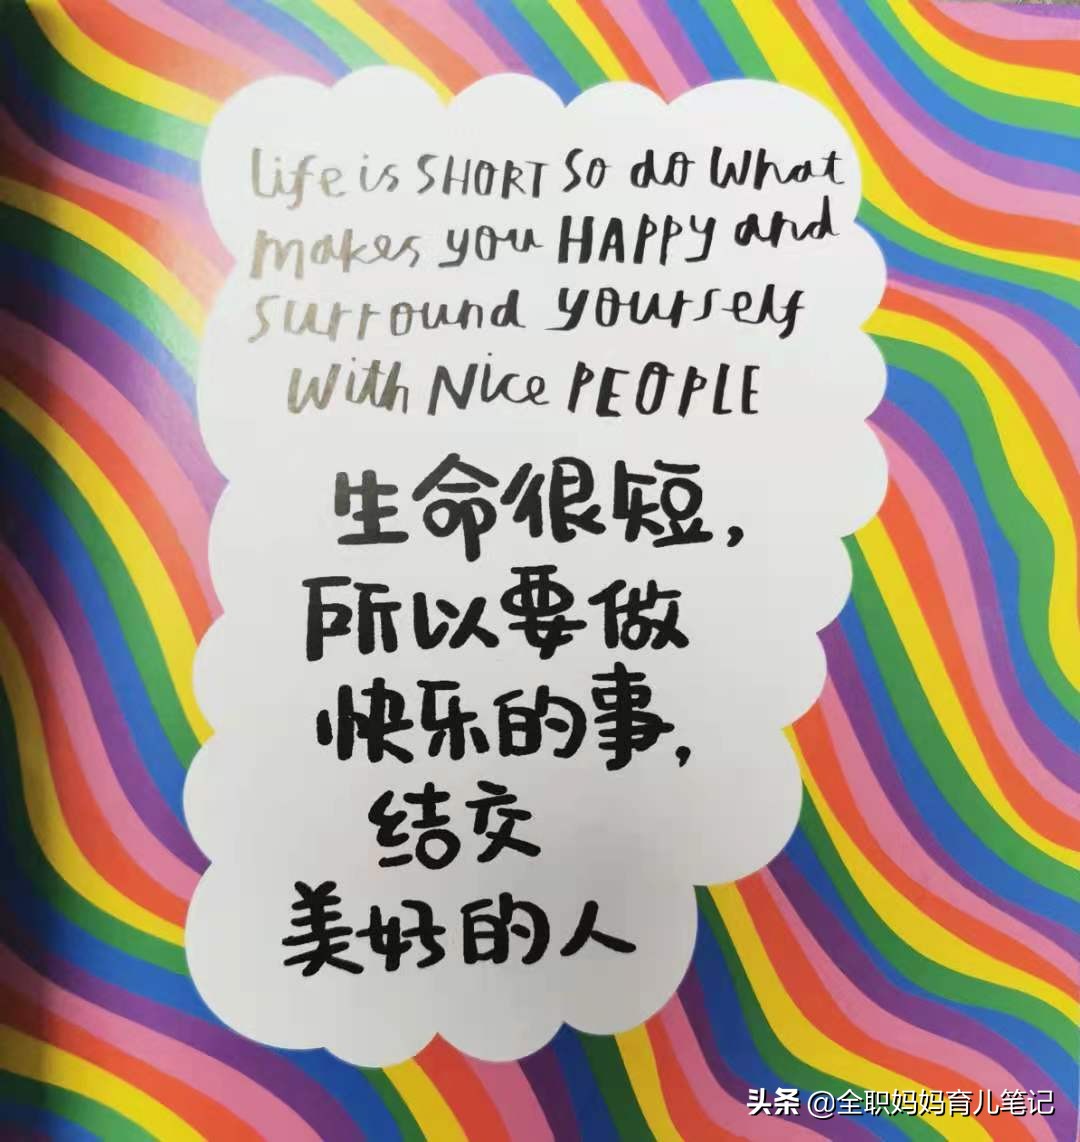 Life is SHORT So do What
makes you HAPPY and
surround yourself
With Nice PEOPLE
生命很短,
所以要做
快乐的事,
结交
美好的人
头条 @全职妈妈育儿笔记